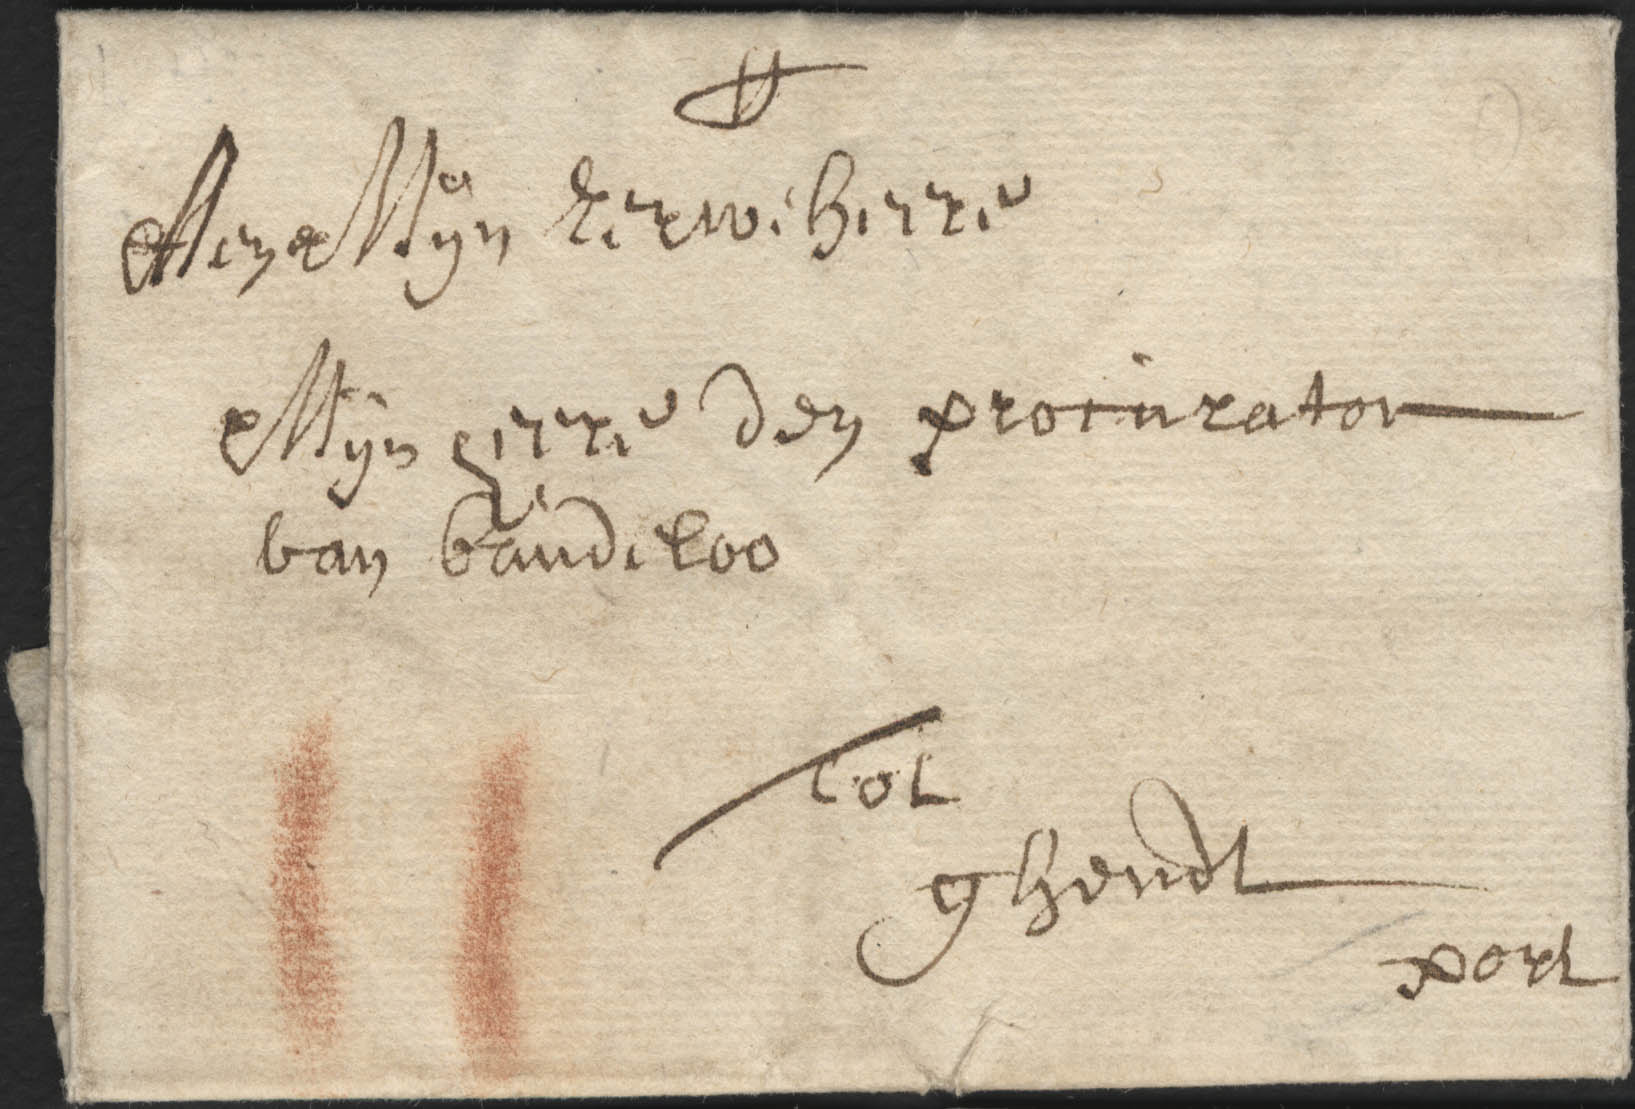 Aen Mijn Eerw: heere
Mijn heere den procurator
van baudeloo
tot
ghendt
port